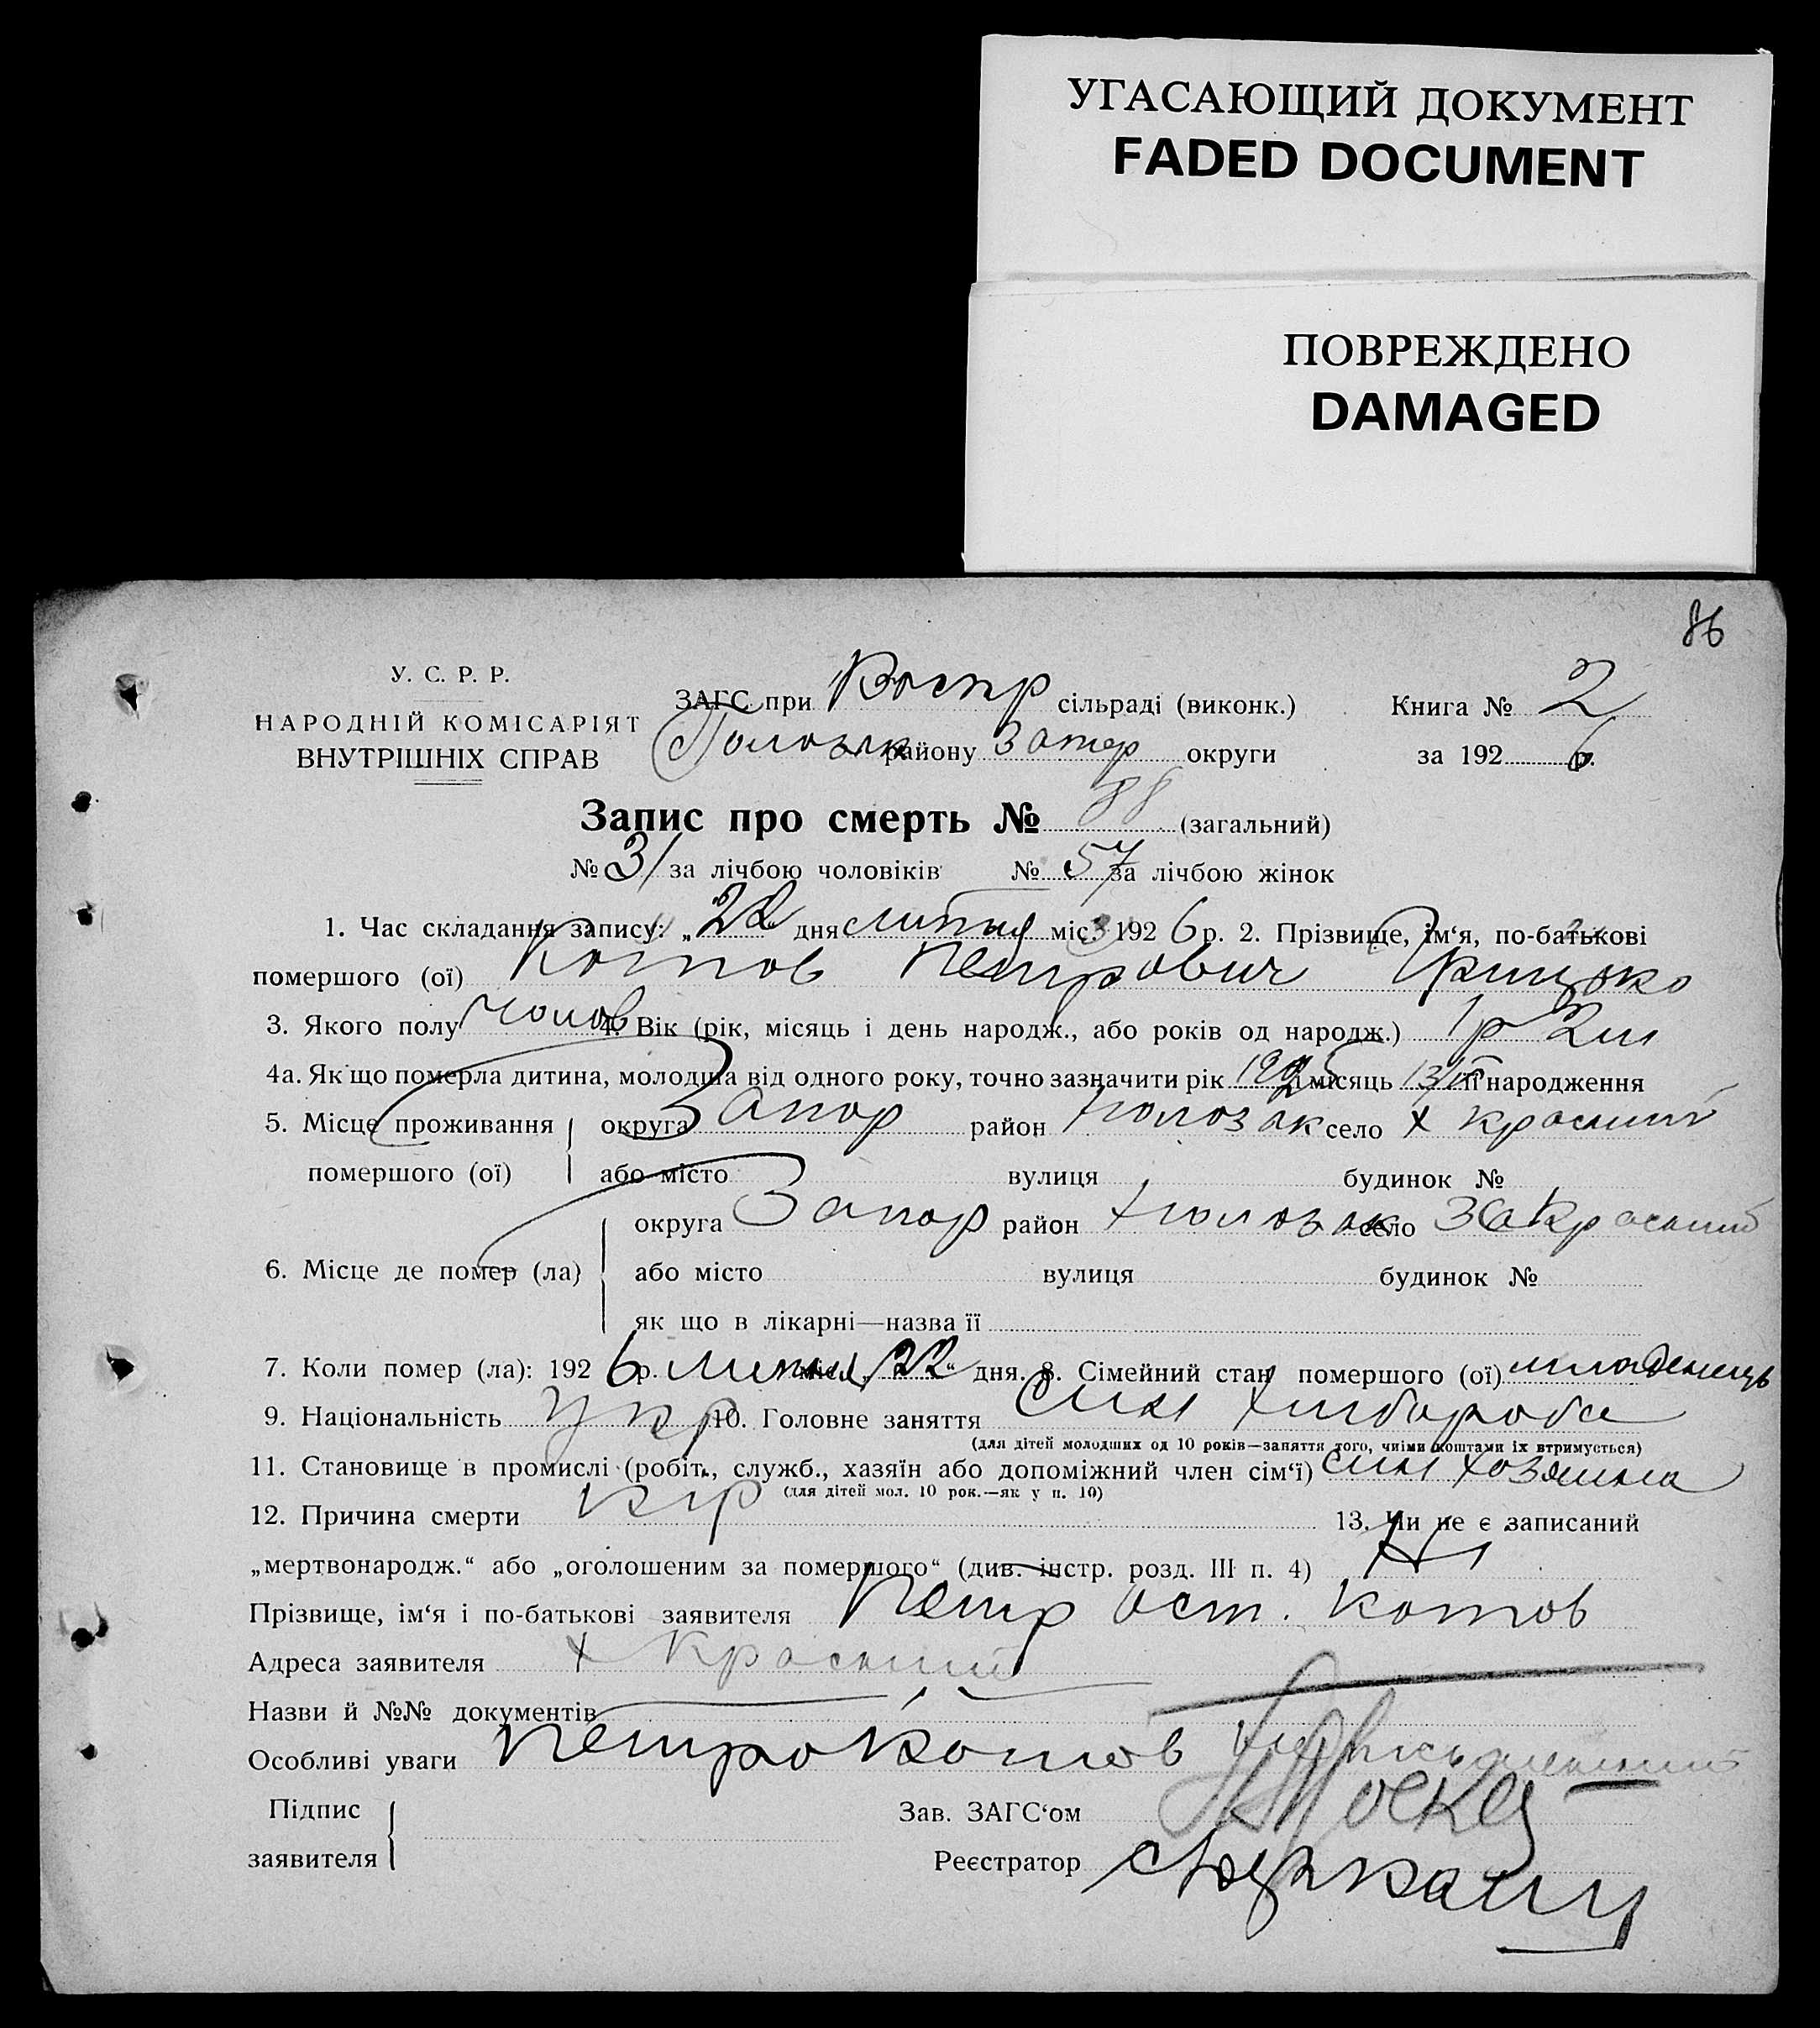 УГАСАЮЩИЙ ДОКУМЕНТ
FADED DOCUMENT
ПОВРЕЖДЕНО
DAMAGED
86
У. С. Р. Р.
НАРОДНІЙ КОМІСАРІЯТ
ВНУТРІШНІХ СПРАВ
ЗАГС при Воскр сільраді (виконк.) Книга № 2
району Запор округи за 192 6 р.
Запис про смерть № 88 (загальний)
№ 31 за лічбою чоловіків № 57 за лічбою жінок
1. Час складання запису: „22“ дня липня міс. 192 6 р. 2. Прізвище, ім‘я, по-батькові
помершого (ої) Котов Петрович Грицько
3. Якого полу чолов 4. Вік (рік, місяць і день народж., або років од народж.) 1 р 2 м
4а. Як що померла дитина, молодша від одного року, точно зазначити рік 1925 і місяць її народження
5. Місце проживання округа Запор район Пологак село х Красний
помершого (ої) або місто вулиця будинок №
округа Запор район Пологак село Красний
6. Місце де помер (ла) або місто вулиця будинок №
як що в лікарні—назва її
7. Коли помер (ла): 192 6 р. липня міс. „22“ дня. 8. Сімейний стан помершого (ої) младенець
9. Національність укр 10. Головне заняття син хлибороба
(для дітей молодших од 10 років—заняття того, чиїми коштами їх втримується)
11. Становище в промислі (робіт., служб., хазяїн або допоміжний член сім‘ї) син хозяина
(для дітей мол. 10 рок.—як у п. 10)
12. Причина смерти кір 13. Чи не є записаний
„мертвонародж.“ або „оголошеним за помершого“ (див. інстр. розд. III п. 4) Ні
Прізвище, ім‘я і по-батькові заявителя Петр Ост. Котов
Адреса заявителя х Красний
Назви й №№ документів
Особливі уваги Петро Котов
Підпис Зав. ЗАГС‘ом
заявителя Реєстратор